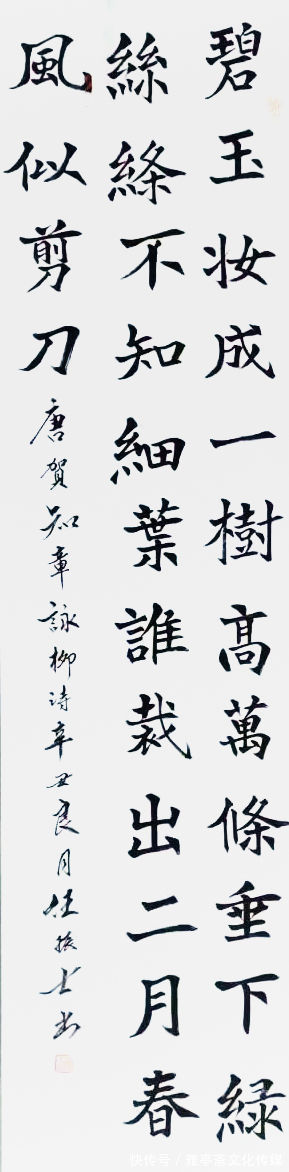 碧玉妆成一樹高萬條垂下緑
絲絛不知細葉誰裁出二月春
風似剪刀
唐賀知章詠柳诗辛丑良月任振士书
快传号/雅亭斋文化传媒